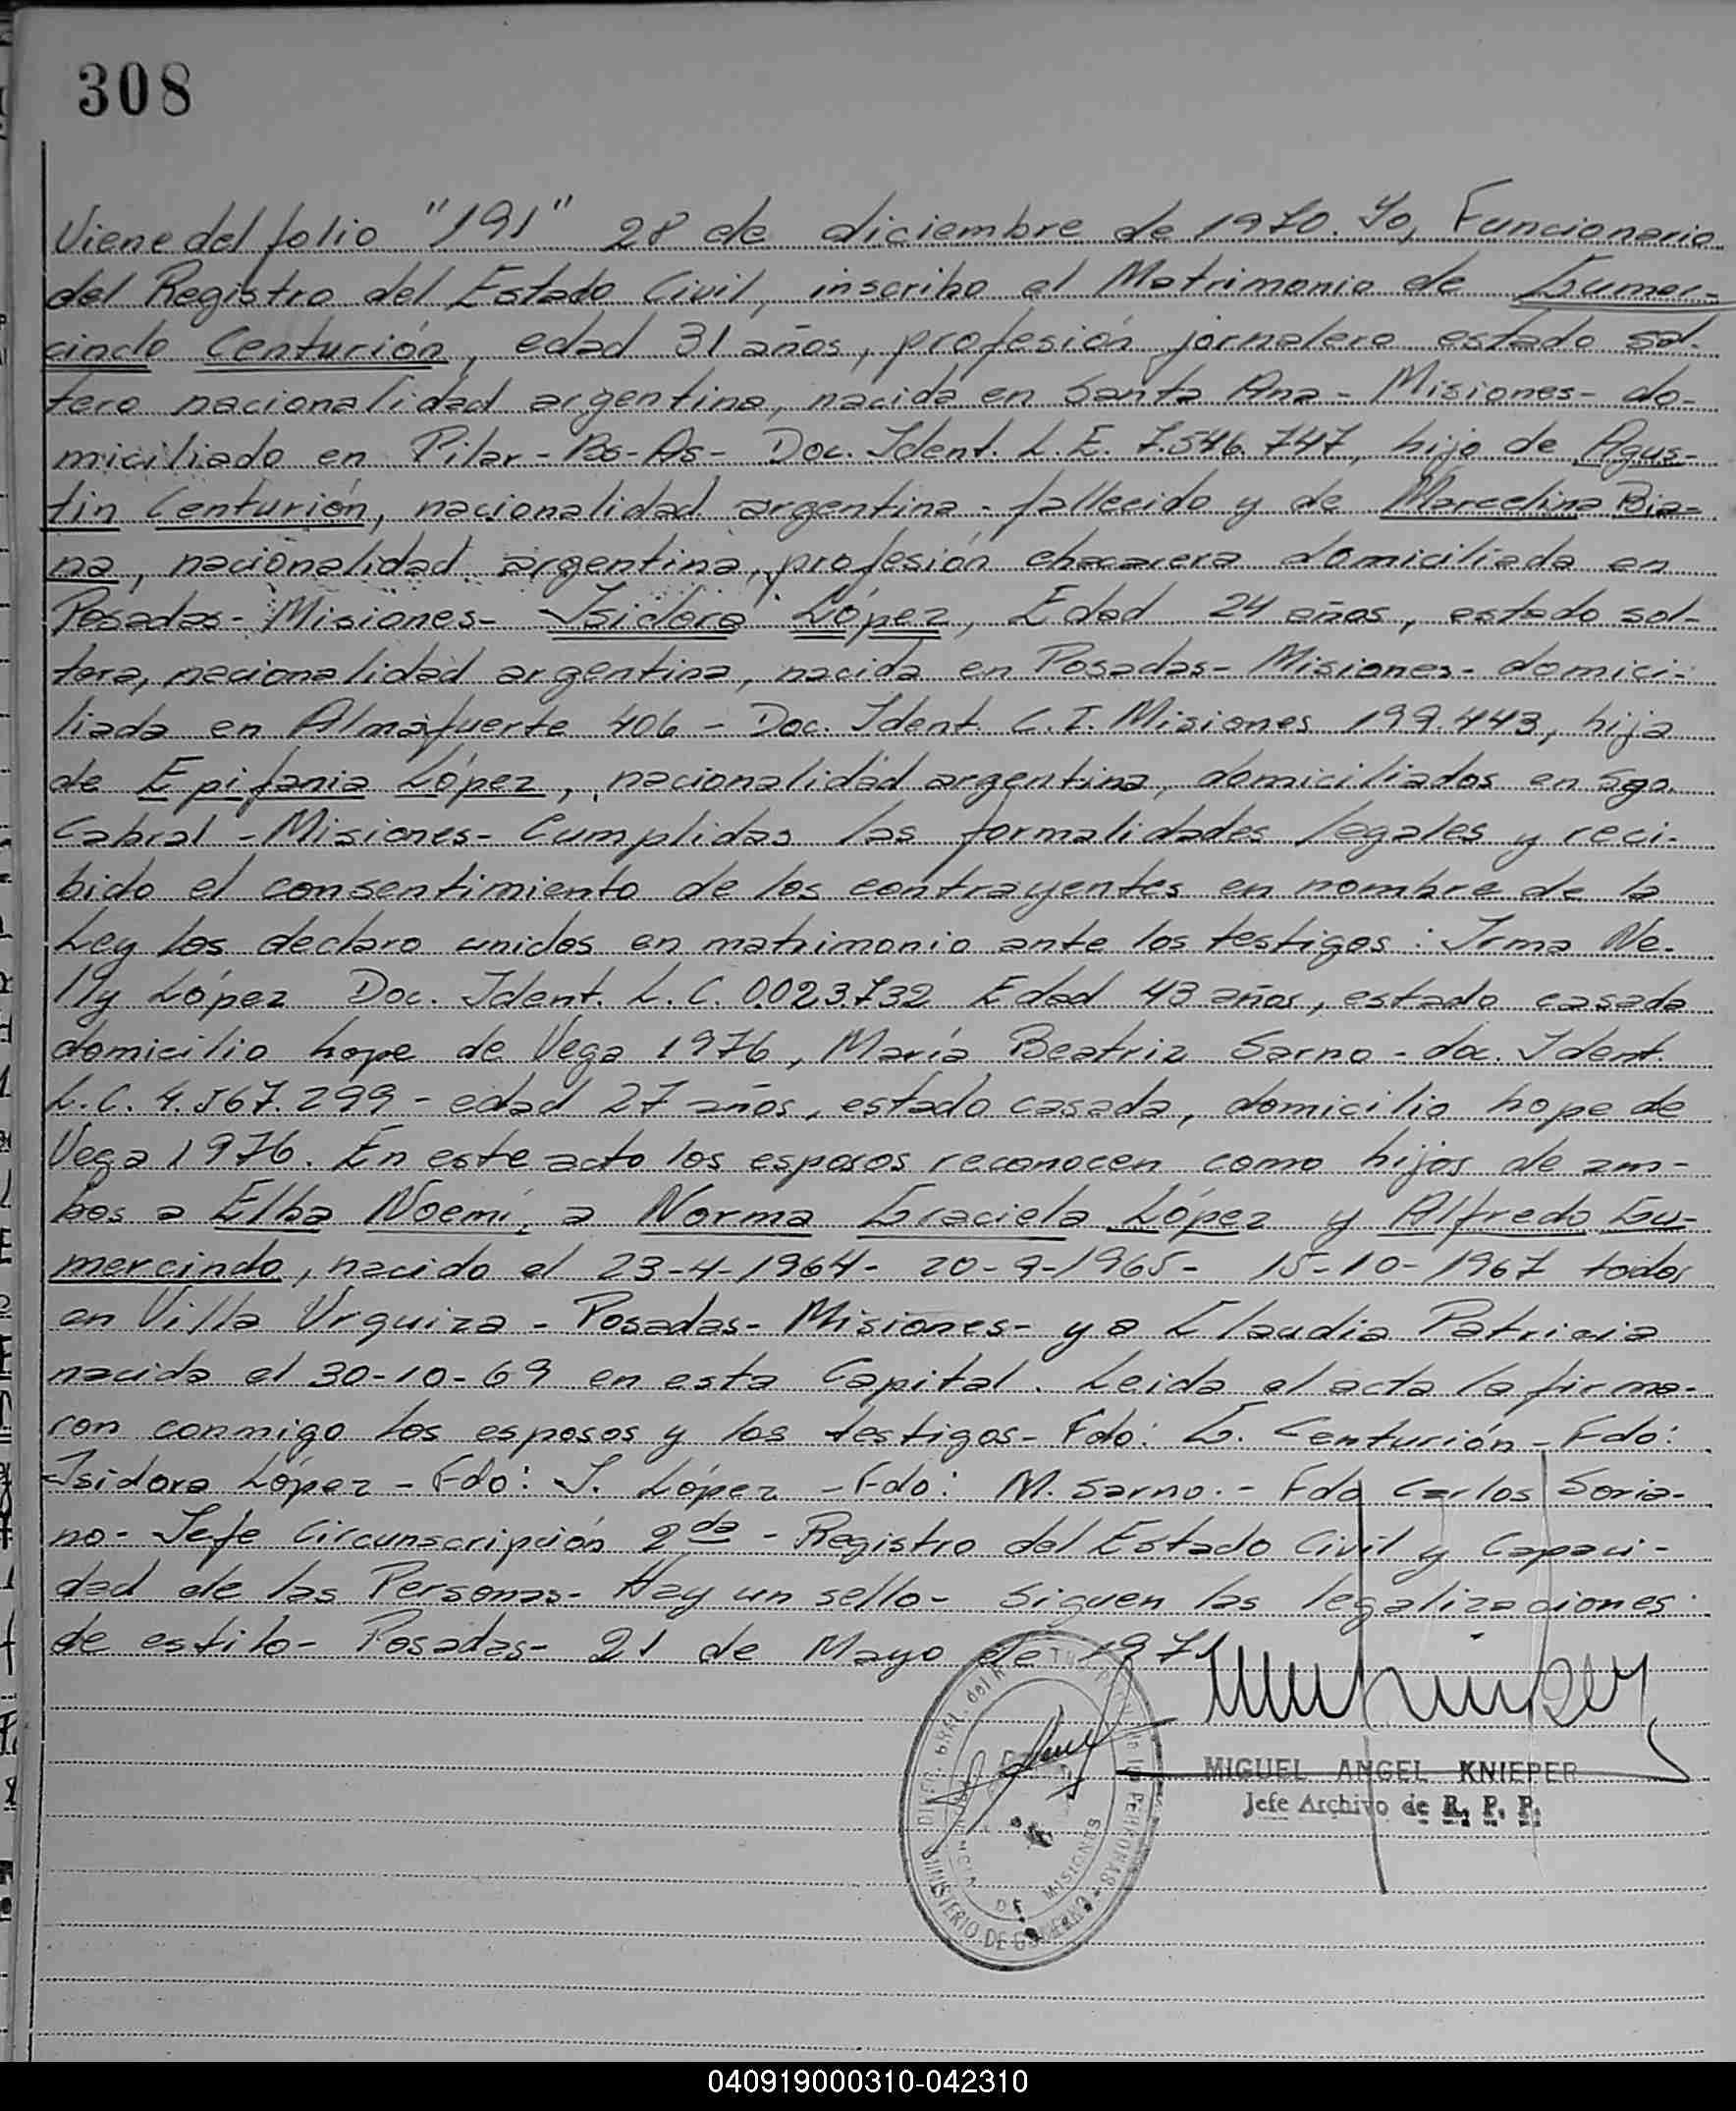 308
Viene del folio "191" 28 de diciembre de 1970. Yo, Funcionario
del Registro del Estado Civil, inscribo el Matrimonio de Gumer-
cindo Centurión, edad 31 años, profesión jornalero estado sol-
tero nacionalidad argentina, nacido en Santa Ana - Misiones - do-
miciliado en Pilar - Bs-As - Doc. Ident. L.E. 7.546.747, hijo de Agus-
tin Centurión, nacionalidad argentina - fallecido y de Marcelina Bia-
na, nacionalidad argentina, profesión chacarera domiciliada en
Posadas - Misiones - Isidora López, Edad 24 años, estado sol-
tera, nacionalidad argentina, nacida en Posadas - Misiones - domici-
liada en Almafuerte 406 - Doc. Ident. C.I. Misiones 199.443, hija
de Epifania López, nacionalidad argentina, domiciliados en Sgo.
Cabral - Misiones - Cumplidas las formalidades legales y reci-
bido el consentimiento de los contrayentes en nombre de la
Ley los declaro unidos en matrimonio ante los testigos: Irma Ne-
lly López Doc. Ident. L.C. 0.023.732 Edad 43 años, estado casada
domicilio Lope de Vega 1976, María Beatriz Sarno - doc. Ident.
L.C. 4.567.299 - edad 27 años, estado casada, domicilio Lope de
Vega 1976. En este acto los esposos reconocen como hijos de am-
bos a Elba Noemí, a Norma Graciela López y Alfredo Gu-
mercindo, nacido el 23-4-1964 - 20-9-1965 - 15-10-1967 todos
en Villa Urquiza - Posadas - Misiones - y a Claudia Patricia
nacida el 30-10-69 en esta Capital. Leida el acta la firma-
ron conmigo los esposos y los testigos - Fdo: G. Centurión - Fdo:
Isidora López - Fdo: I. López - Fdo: M. Sarno. - Fdo Carlos Soria-
no - Jefe Circunscripción 2da - Registro del Estado Civil y Capaci-
dad de las Personas - Hay un sello - Siguen las legalizaciones
de estilo - Posadas - 21 de Mayo de 1971
MIGUEL ANGEL KNIEPER
Jefe Archivo de R. P. P.
MINISTERIO DE GOBIERNO
DE MISIONES
PERSONAS
040919000310-042310